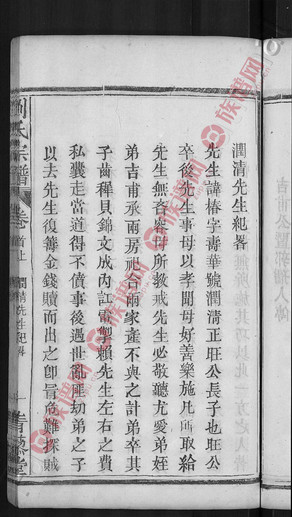 潤清先生紀畧
先生諱椿字青華號潤清正旺公長子也旺公
卒後先生事母以孝聞母好善樂施凡所取給
先生無吝容母所教戒先生必敬聽尤愛弟姪
弟吉甫承雨房祀合兩家產不與之計弟卒其
子齒穉貝錦文成內訌雷掣賴先生左右之費
私囊走當道得不僨事後遇世亂匪刧弟之子
以去先生復籌金錢贖而出之卽冒危難探賊
劉氏宗譜
卷首上
潤清先生紀畧
青藜堂
族谱网